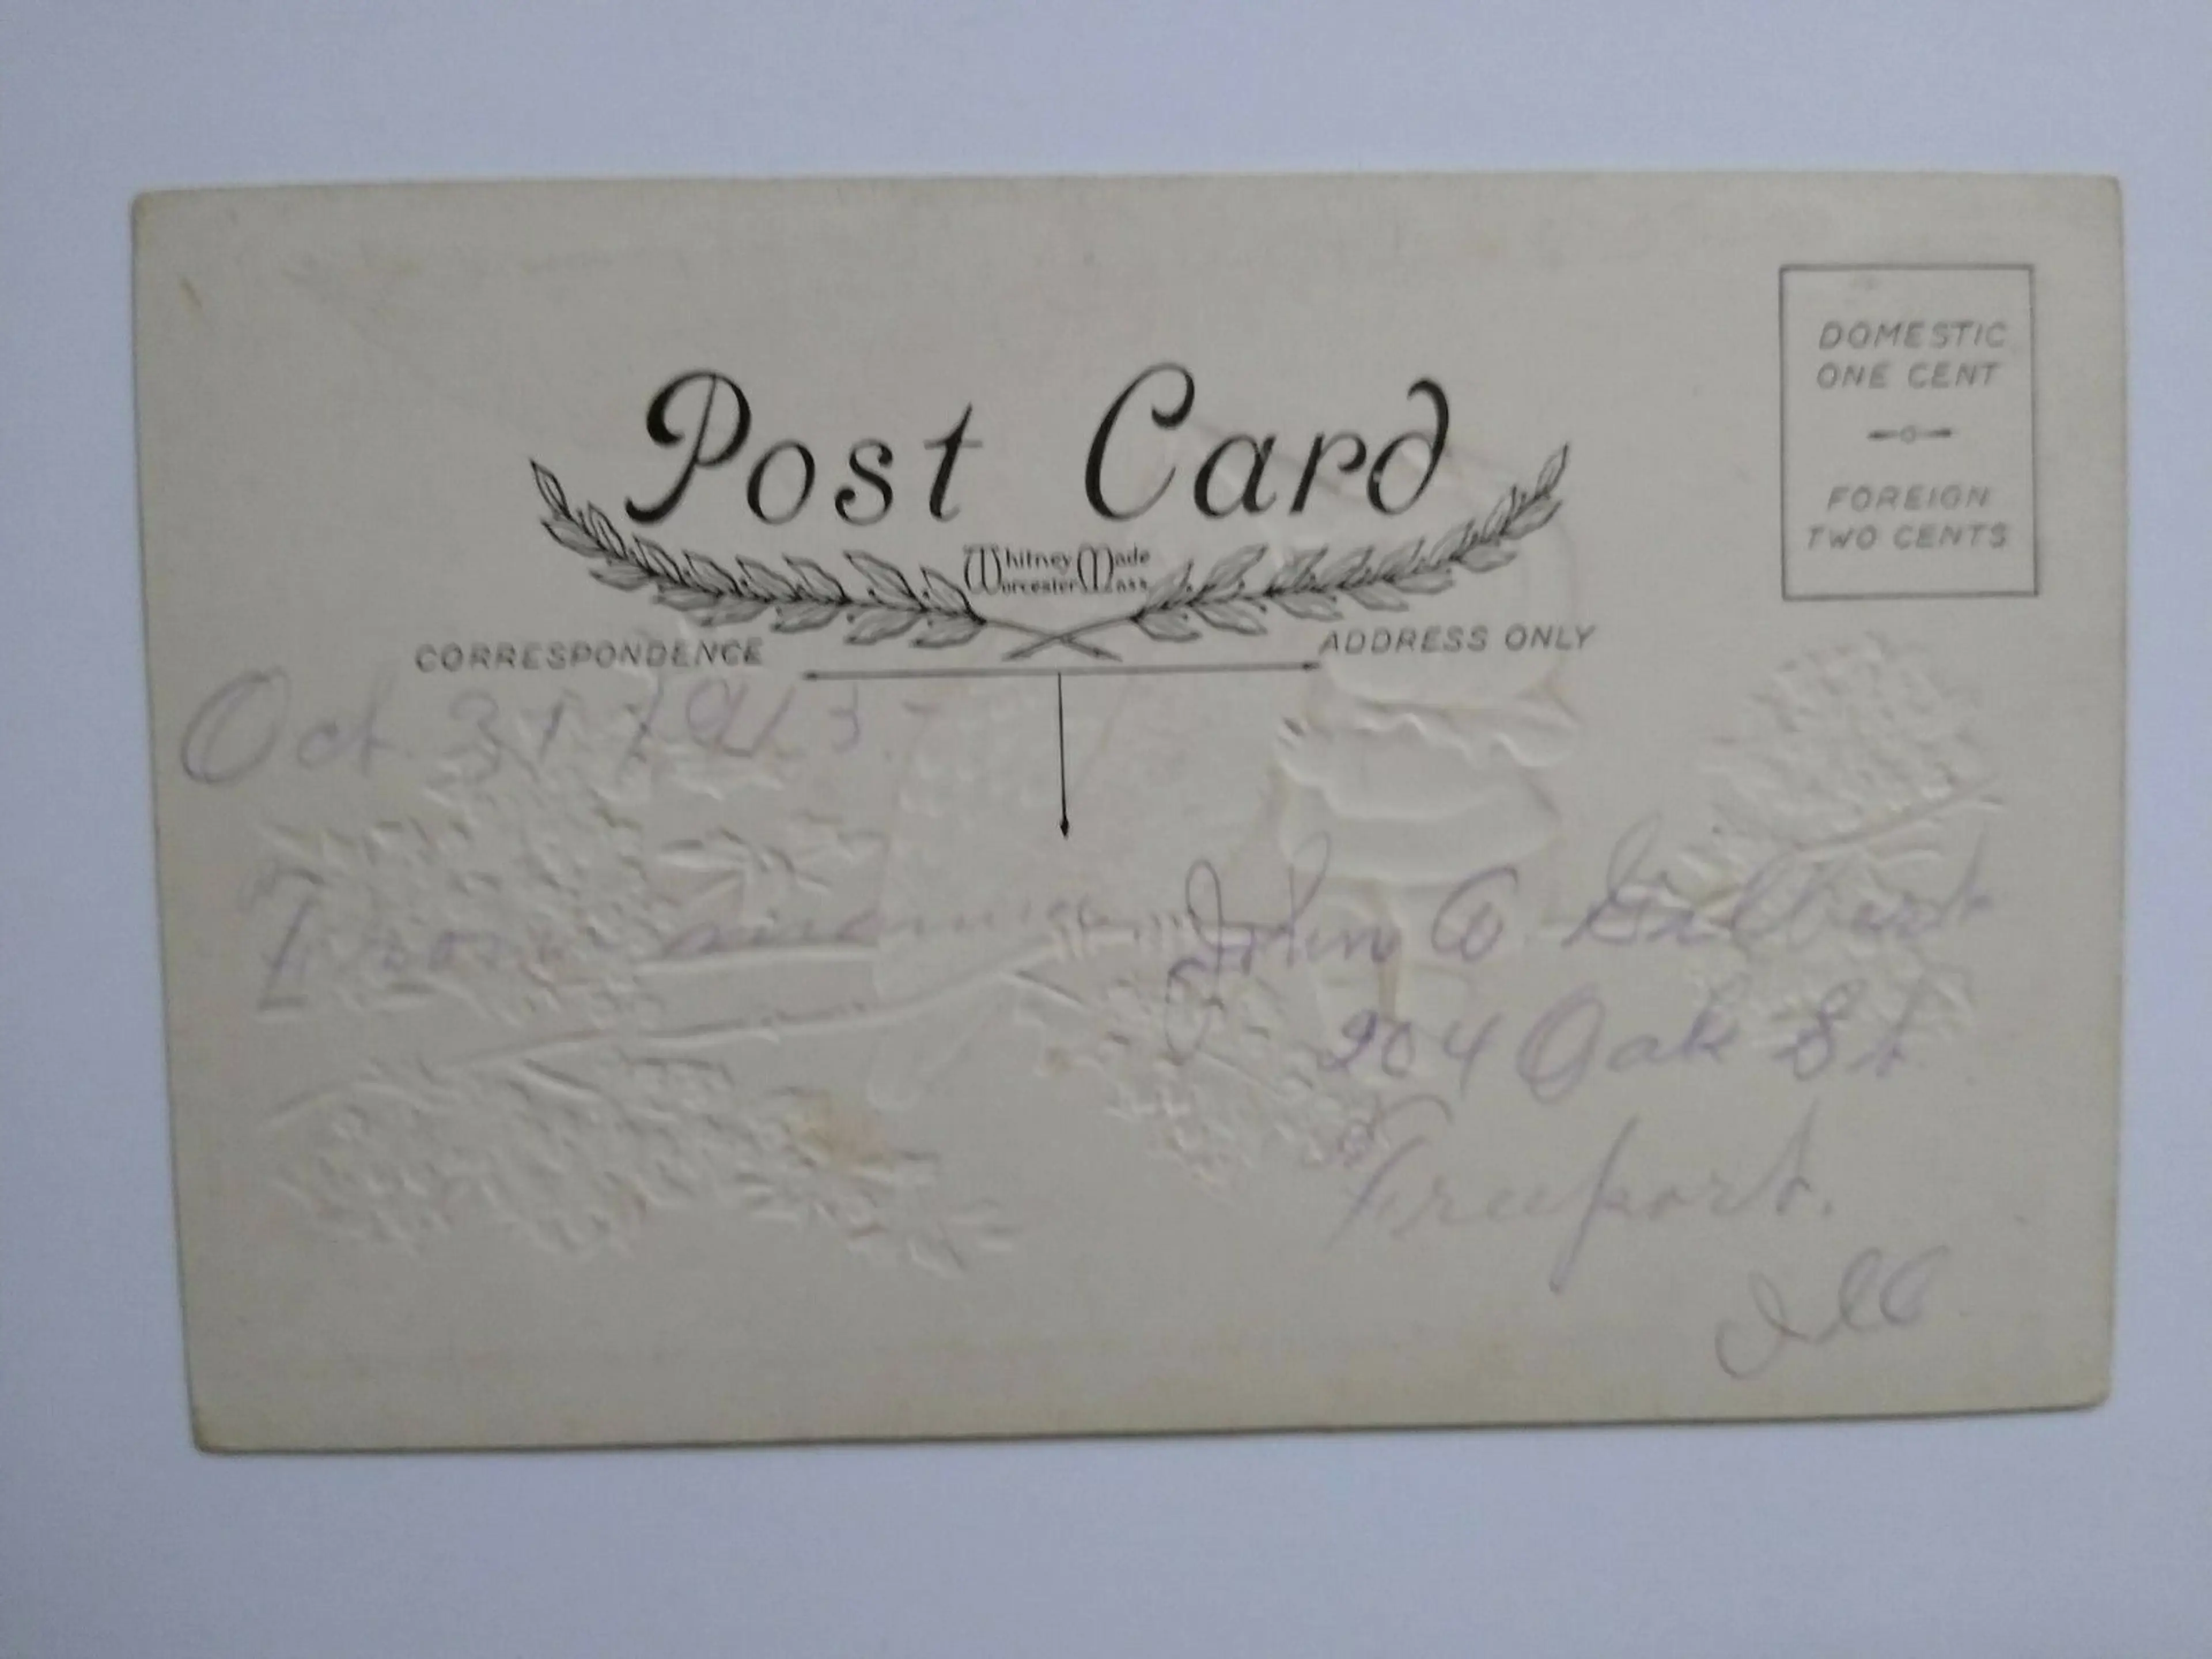 Post Card
Whitney Made
Worcester Mass
DOMESTIC
ONE CENT
FOREIGN
TWO CENTS
CORRESPONDENCE
ADDRESS ONLY
Oct 31 1913
From
John
204 Oak St
Freeport.
Ill